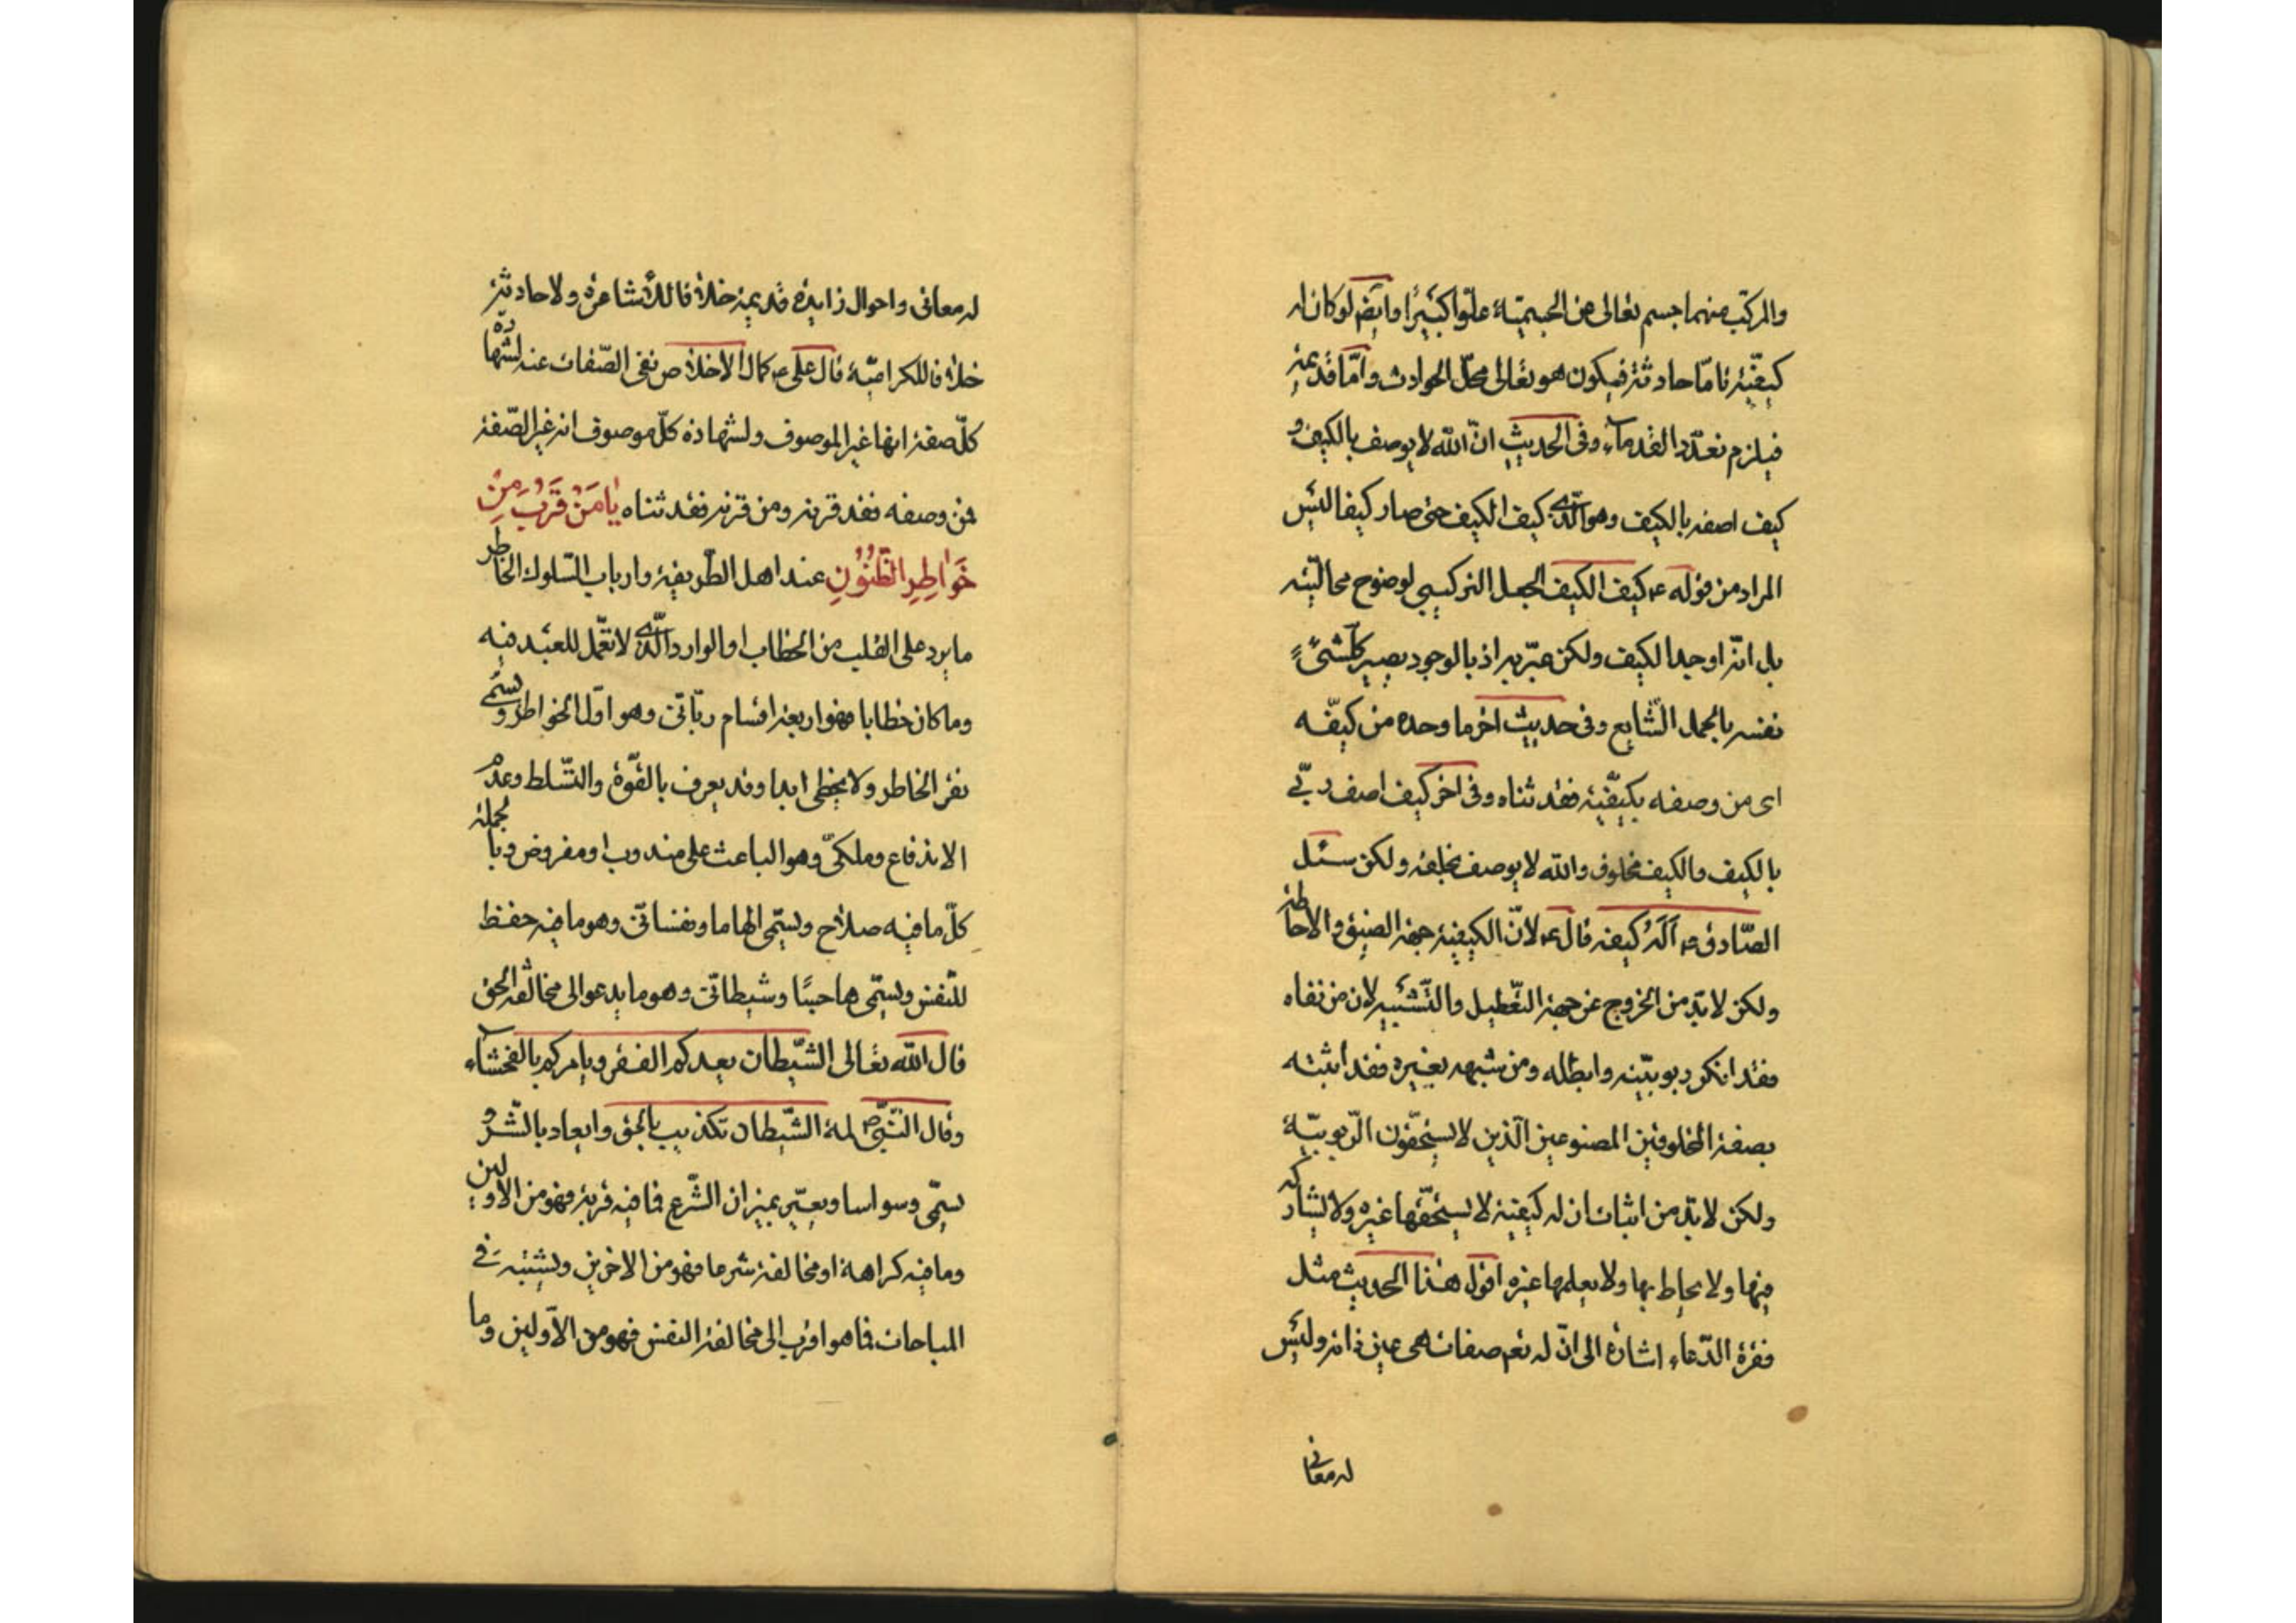 والمركّب منهما جسم تعالى عن الجسميّة علوّا كبيرا وايضم لوكان له
كيفيّة فامّا حادثة فيكون هو تعالى محلّ الحوادث وامّا قديمة
فيلزم تعدّد القدماء وفى الحديث انّ الله لا يوصف بالكيف و
كيف اصفه بالكيف وهو الّذى كيف الكيف حتى صار كيفا ليس
المراد من قوله ع كيف الكيف الجعل التركيبى لوضوح محاليّته
بل انّه اوجد الكيف ولكن عبّر به اذ بالوجود يصير كلّ شىء
نفسه بالحمل الشّايع وفى حديث اخر ما وحده من كيفّه
اى من وصفه بكيفيّة فقد ثناه وفى اخر كيف اصف ربّى
بالكيف والكيف مخلوق والله لا يوصف بخلقه ولكن سئل
الصّادق ع أله كيفه قال ع لانّ الكيفيّة جهة الصفة والاحاطة
ولكن لا بدّ من الخروج عن جهة التّعطيل والتّشبيه لان من نفاه
فقد انكر ربوبيّته وابطله ومن شبهه بغيره فقد اثبته
بصفة المخلوقين المصنوعين الّذين لا يستحقّون الرّبوبيّة
ولكن لا بدّ من اثبات ان له كيفيّة لا يستحقّها غيره ولا يشارك
فيها ولا يحاط بها ولا يعلمها غيره اقول هذا الحديث مثل
فقرة الدّعاء اشارة الى انّ له تعم صفات هى عين ذاته وليس
له معانى
له معانى واحوال زايدة قديمة خلافا للأشاعرة ولا حادثة
خلافا للكراميّة قال على ع كمال الاخلاص نفى الصّفات عنه لشهادة
كلّ صفة انها غير الموصوف ولشهادة كلّ موصوف انه غير الصّفة
فمن وصفه فقد قرنه ومن قرنه فقد ثناه يَا مَنْ قَرُبَ مِنْ
خَوَاطِرِ الظُّنُونِ عند اهل الطّريقة وارباب السّلوك الخاطر
ما يرد على القلب من الخطاب او الوارد الّذى لا تعمّل للعبد فيه
وما كان خطابا فهو اربعة اقسام ربّانى وهو اوّل الخواطر ويسمّى
نقر الخاطر ولا يخطى ابدا وقد يعرف بالقوّة والتّسلط وعدم
الاندفاع وملكىّ وهو الباعث على مندوب او مفروض وبالجملة
كلّ ما فيه صلاح ويسمّى الهاما ونفسانى وهو ما فيه حفظ
للنّفس ويسمّى هاجسًا وشيطانى وهو ما يدعو الى مخالفة الحق
قال الله تعالى الشّيطان يعدكم الفقر ويامركم بالفحشاء
وقال النّبىّ ص لمة الشّيطان تكذيب بالحق وايعاد بالشّر و
يسمّى وسواسا ويعيّر بميزان الشّرع فما فيه قربة فهو من الاولين
وما فيه كراهة او مخالفة شرعا فهو من الاخرين ويشتبه فى
المباحات فما هو اقرب الى مخالفة النفس فهو من الاوّلين وما